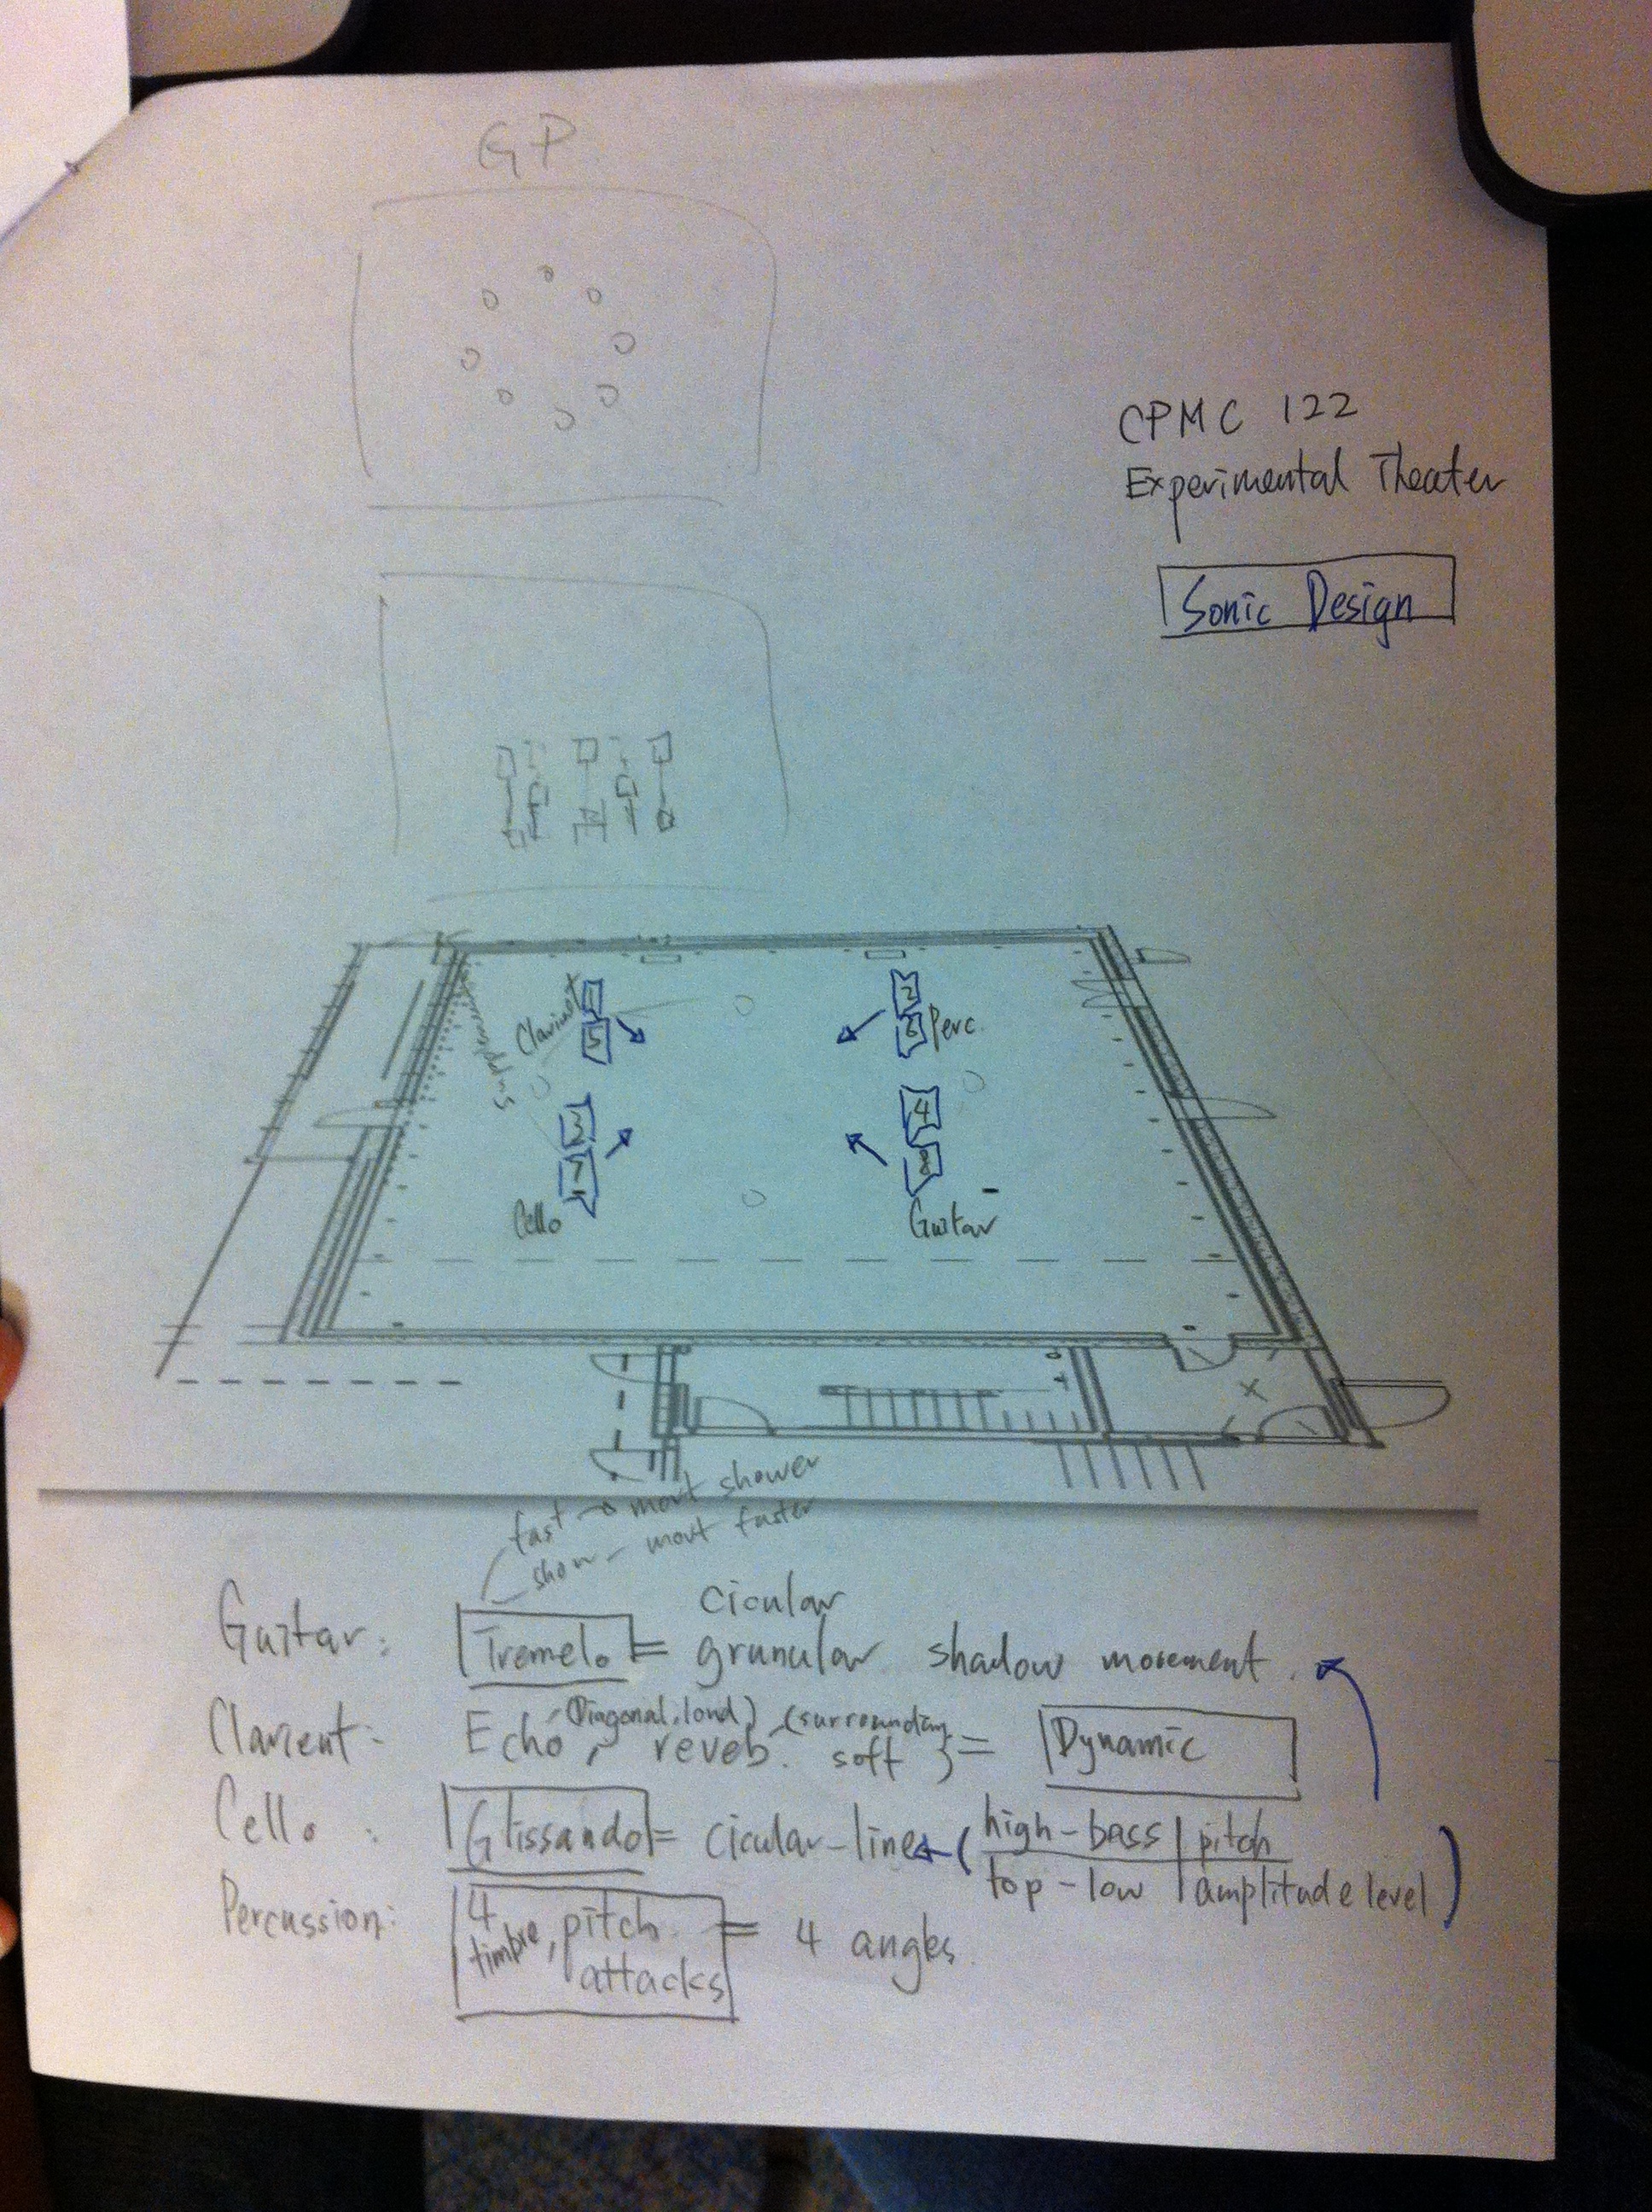 GP
CPMC 122
Experimental Theater
Sonic Design
Clarinet
1
5
2
6
Perc.
3
7
4
8
Cello
Guitar
fast → movt shower
show - movt faster
Cicular
Guitar: Tremelo = granular shadow movement.
(Diagonal, loud) (surrounding
Clarient: Echo, reveb. soft } = Dynamic
Cello: Glissando = cicular-line ← (high-bass | pitch
top-low | amplitude level)
Percussion: 4 timbre, pitch attacks = 4 angles.